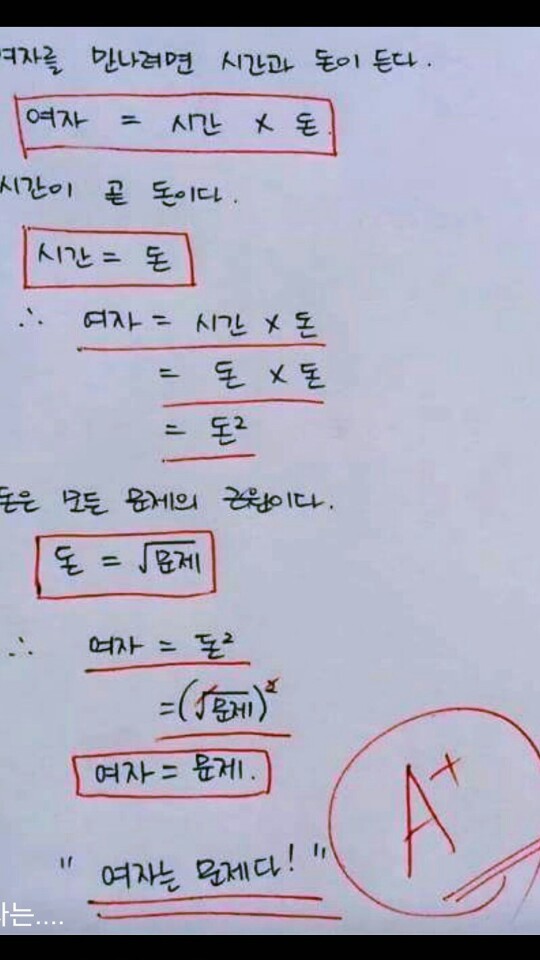 여자를 만나려면 시간과 돈이 든다.
여자 = 시간 × 돈.
시간이 곧 돈이다.
시간 = 돈
∴ 여자 = 시간 × 돈
= 돈 × 돈
= 돈²
돈은 모든 문제의 근원이다.
돈 = √문제
∴ 여자 = 돈²
=(√문제)²
여자 = 문제.
" 여자는 문제다! "
A+
는....